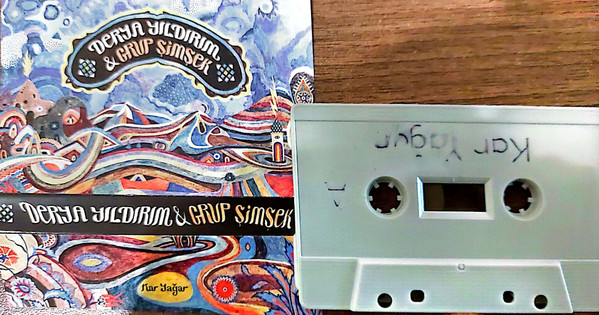 DERYA YILDIRIM
& GRUP ŞİMŞEK
DERYA YILDIRIM & GRUP ŞİMŞEK
Kar Yağar
Kar Yağar
A